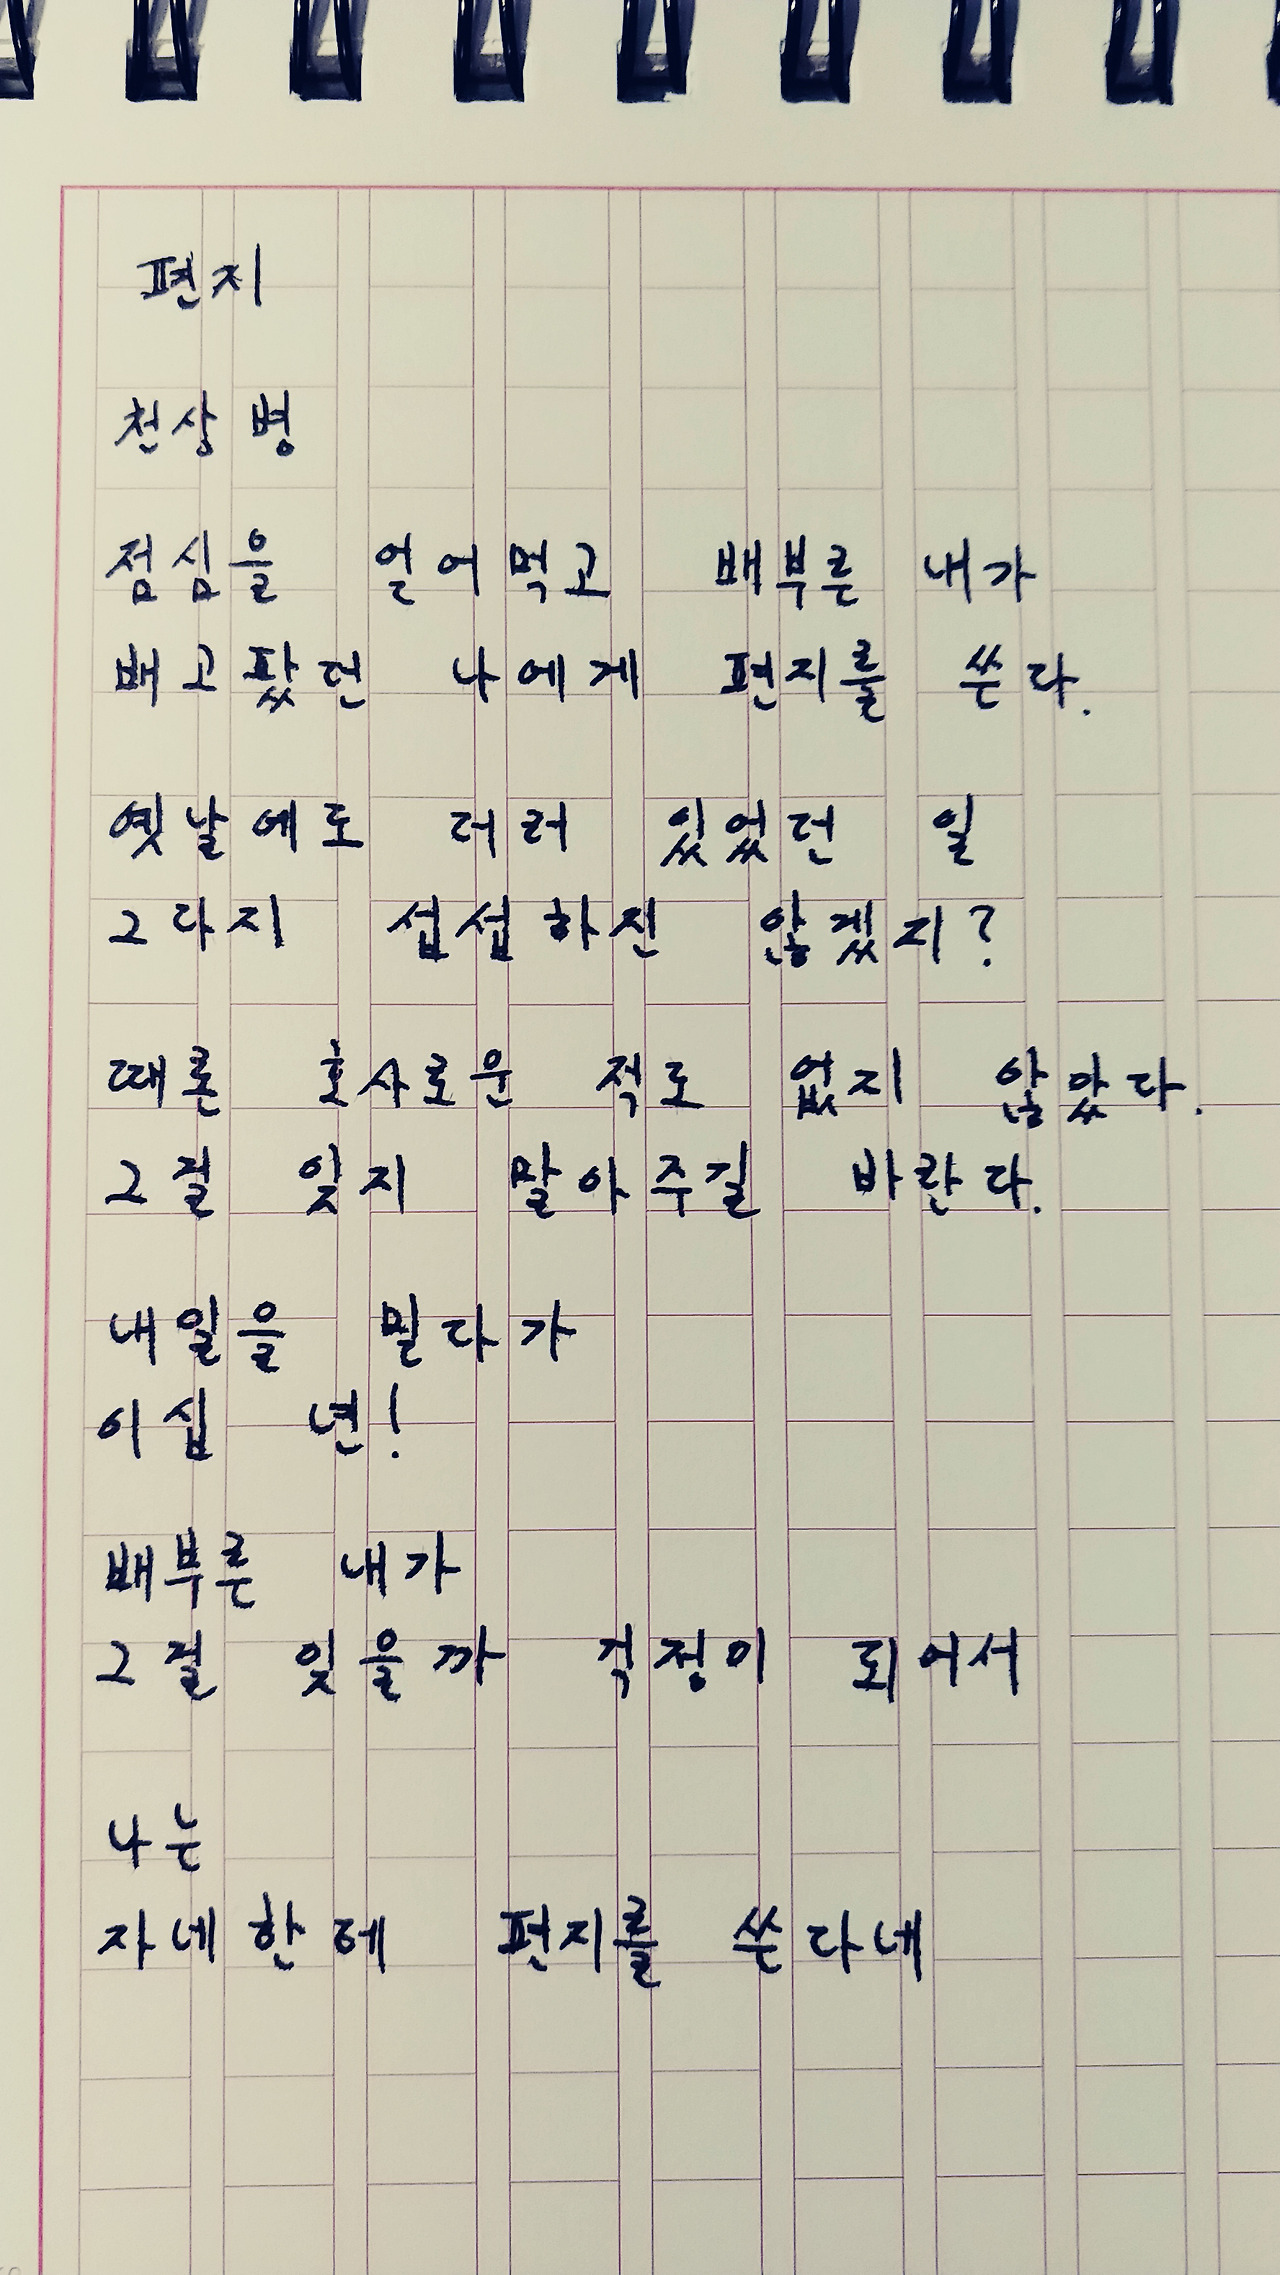 편지
천상병
점심을 얻어먹고 배부른 내가
배고팠던 나에게 편지를 쓴다.
옛날에도 더러 있었던 일
그다지 섭섭하진 않겠지?
때론 호사로운 적도 없지 않았다.
그걸 잊지 말아주길 바란다.
내일을 믿다가
이십 년!
배부른 내가
그걸 잊을까 걱정이 되어서
나는
자네한테 편지를 쓴다네